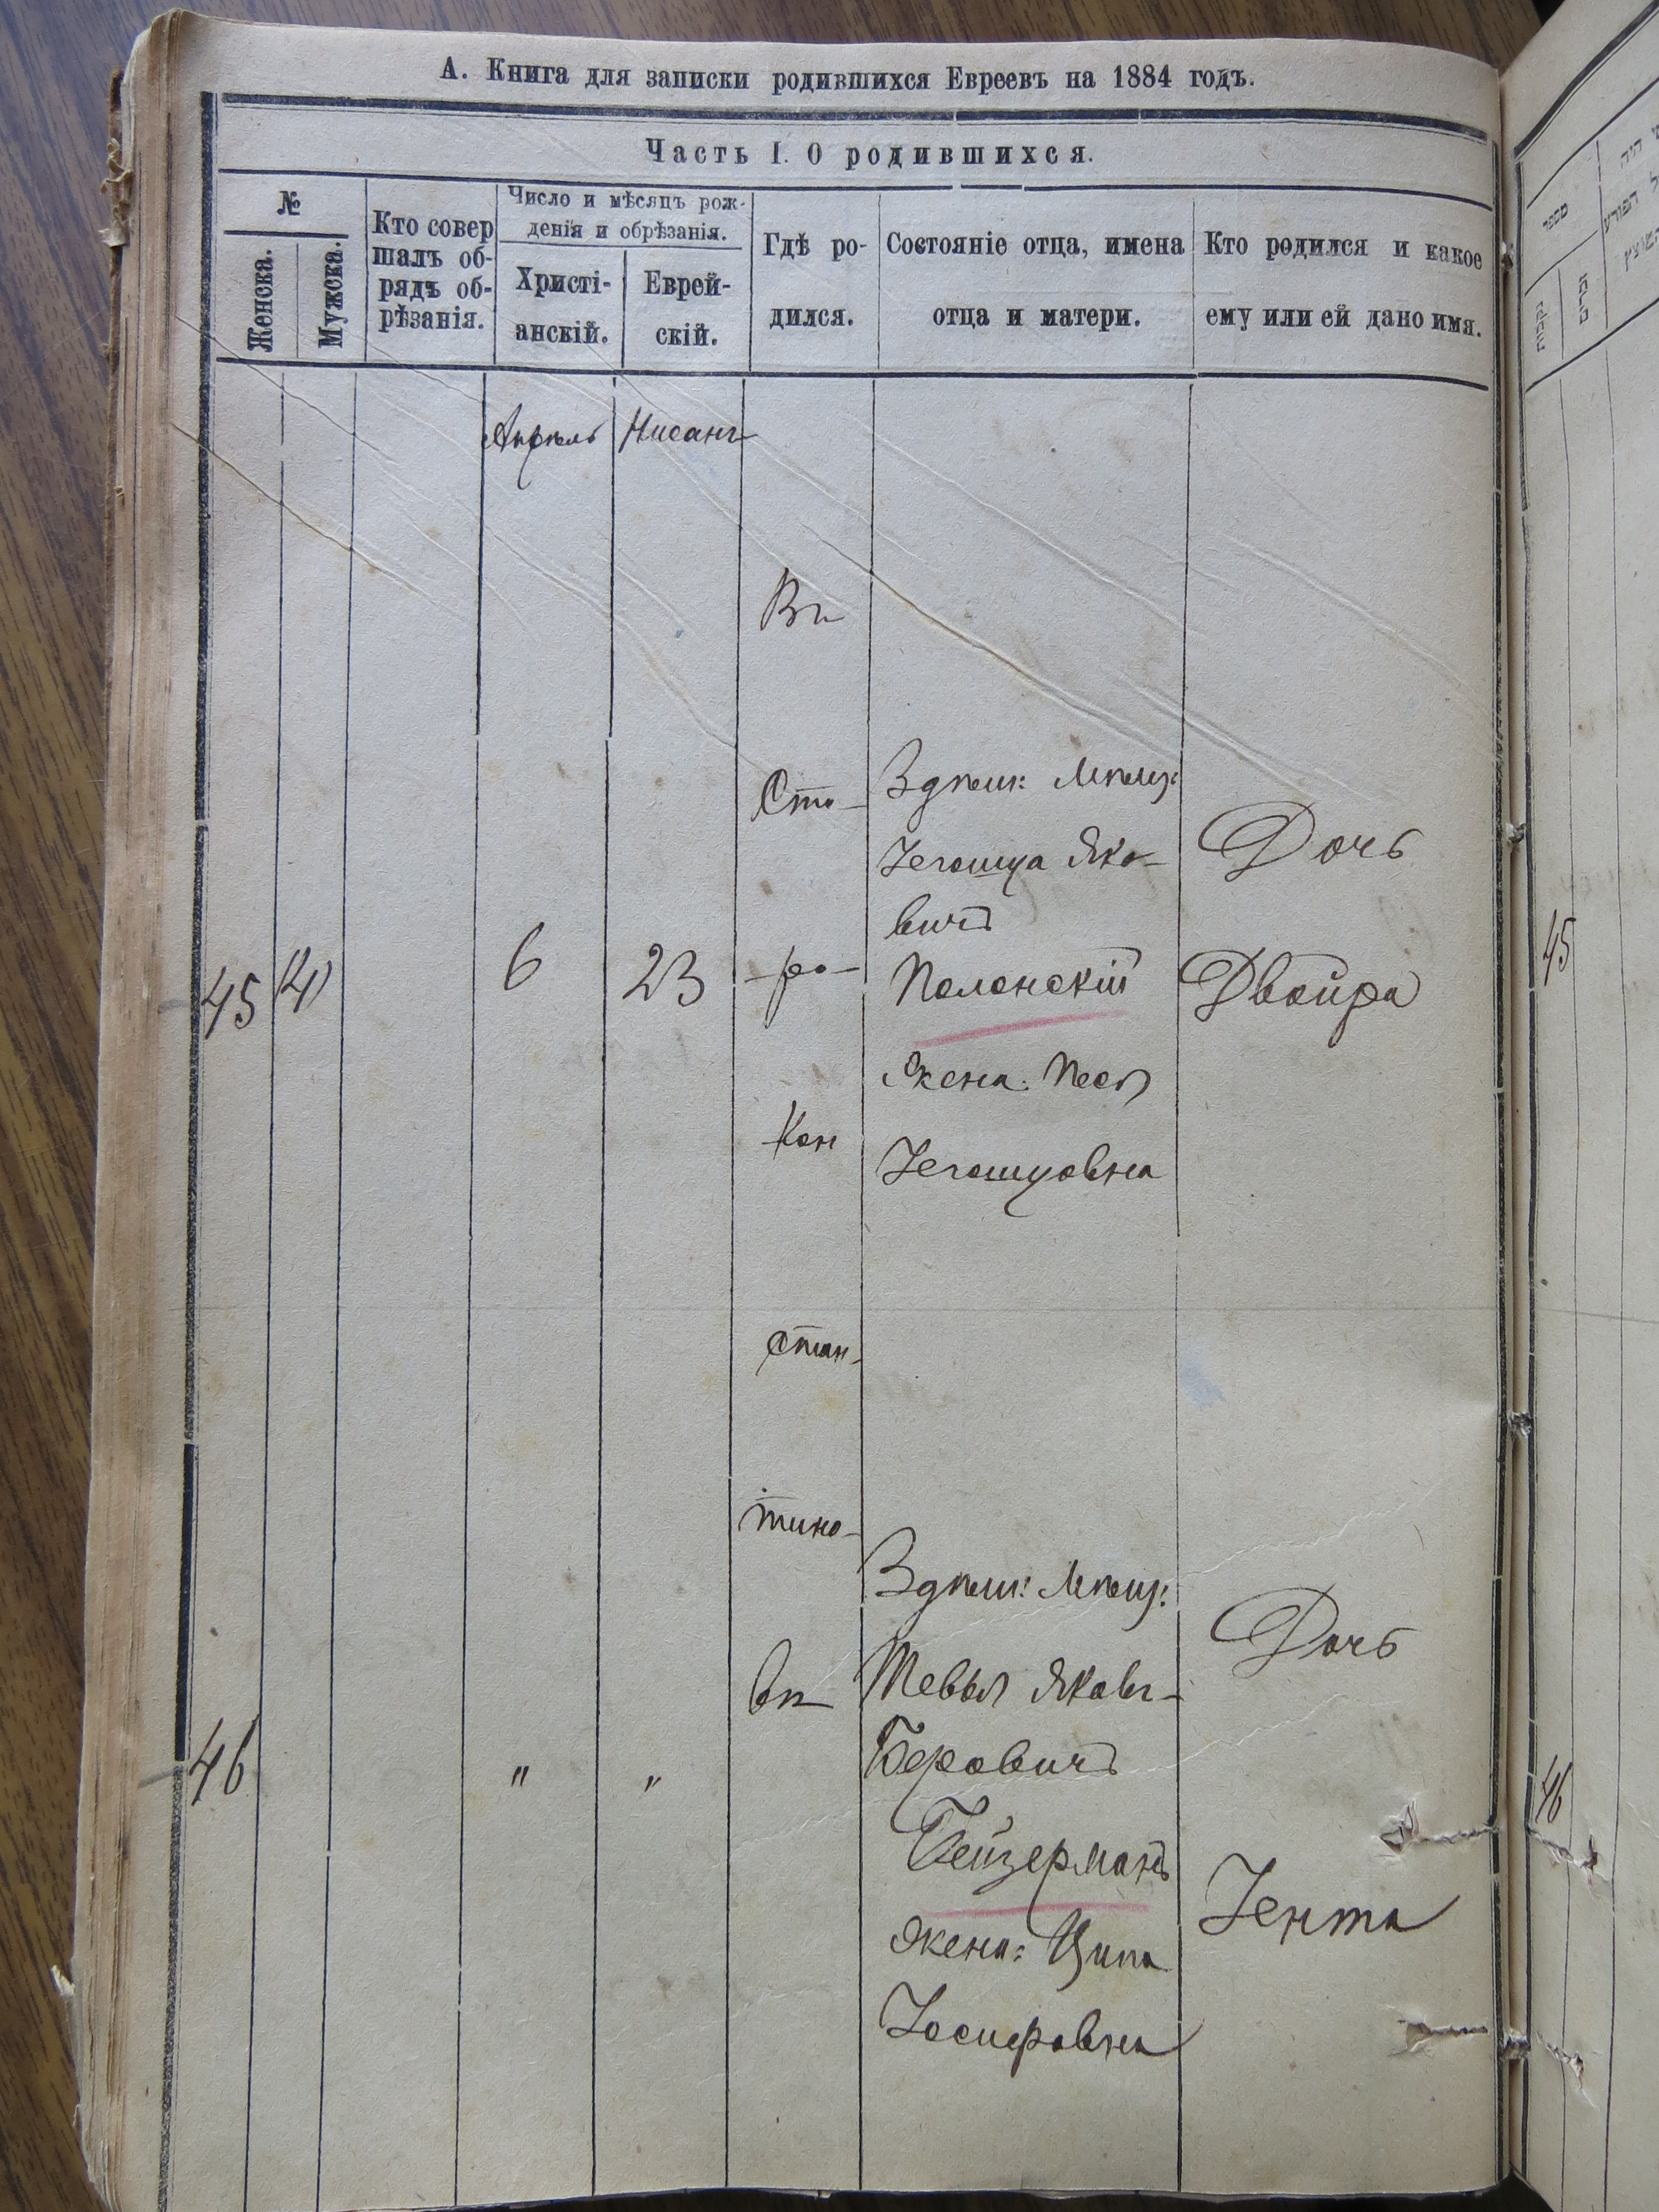 А. Книга для записки родившихся Евреевъ на 1884 годъ.
Часть I. О родившихся.
№
Женска.
Мужска.
Кто совер
шалъ об-
рядъ об-
рѣзанія.
Число и мѣсяцъ рож-
денія и обрѣзанія.
Христі-
анскій.
Еврей-
скій.
Гдѣ ро-
дился.
Состояніе отца, имена
отца и матери.
Кто родился и какое
ему или ей дано имя.
Апрѣль
Нисанъ
Въ
Сто-
-ро-
Кон
стан-
тино-
вѣ
45
6
23
Здѣш: Мѣщ:
Іегошуа Яко-
вичъ
Полонскій
Жена: Песя
Іегошуовна
Дочь
Двойра
46
"
"
Здѣш: Мѣщ:
Тевья Яковъ-
Беровичъ
Гейзерманъ
Жена: Ципа
Іосифовна
Дочь
Іента
מספר
45
46